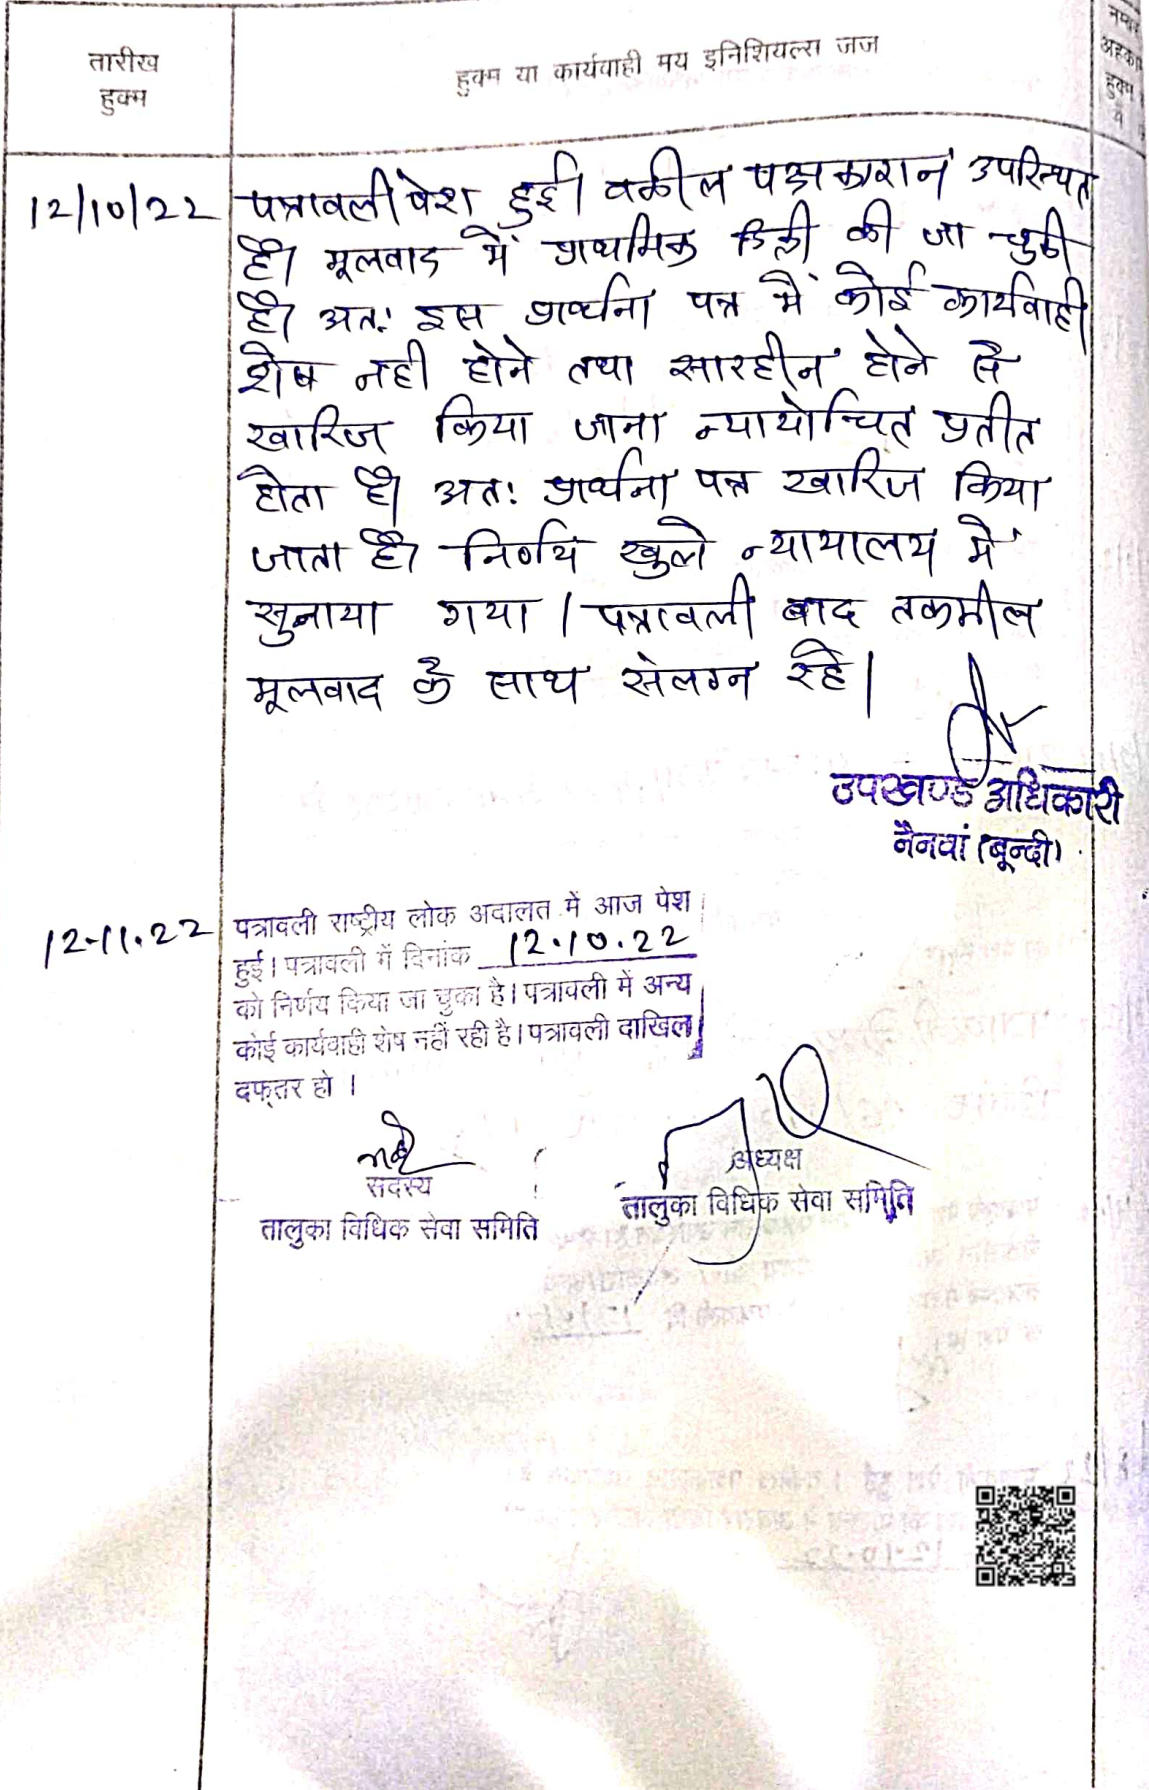 तारीख
हुक्म
हुक्म या कार्यवाही मय इनिशियल्स जज
नम्बर
अहकाम
हुक्म
12/10/22
पत्रावली पेश हुई। वकील पक्षकारान उपस्थित
है। मूलवाद में प्राथमिक डिक्री की जा चुकी
है। अतः इस प्रार्थना पत्र में कोई कार्यवाही
शेष नही होने तथा सारहीन होने से
खारिज किया जाना न्यायोचित प्रतीत
होता है। अतः प्रार्थना पत्र खारिज किया
जाता है। निर्णय खुले न्यायालय में
सुनाया गया। पत्रावली बाद तकमील
मूलवाद के साथ संलग्न रहे।
उपखण्ड अधिकारी
नैनवां (बून्दी)
12.11.22
पत्रावली राष्ट्रीय लोक अदालत में आज पेश
हुई। पत्रावली में दिनांक 12.10.22
को निर्णय किया जा चुका है। पत्रावली में अन्य
कोई कार्यवाही शेष नहीं रही है। पत्रावली दाखिल
दफ्तर हो ।
सदस्य
तालुका विधिक सेवा समिति
अध्यक्ष
तालुका विधिक सेवा समिति